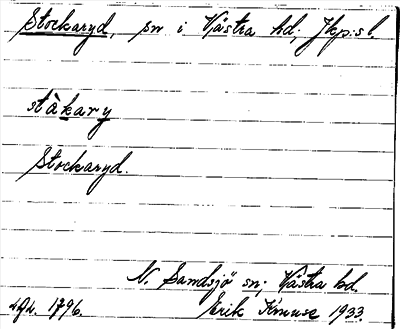 Stockaryd, sn i Västra hd, Jkp:sl.
stàkary
Stockaryd.
N. Sandsjö sn; Västra hd.
1796. Erik Kruuse 1933